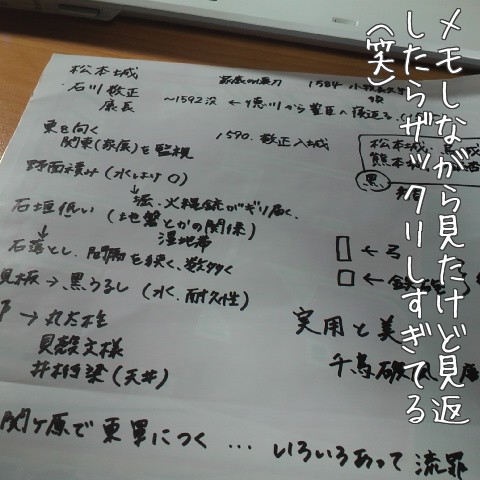 メモしながら見たけど見返
したらザックリしすぎてる
(笑)
松本城
石川数正
康長
家康の懐刀
1584 小牧長久手
~1592没 ← 徳川から豊臣へ寝返る
東を向く
関東(家康)を監視
1590. 数正入城
松本城
熊本城
黒
野面積み(水はけ○)
堀.火縄銃がギリ届く、
石垣低い(地盤とかの関係)
湿地帯
石落とし、間隔を狭く、数多く
←弓
←鉄
見板→黒うるし(水.耐久性)
→丸太柱
貝殻文様
井桁梁(天井)
実用と美
千鳥破風
関ヶ原で東軍につく…いろいろあって流罪